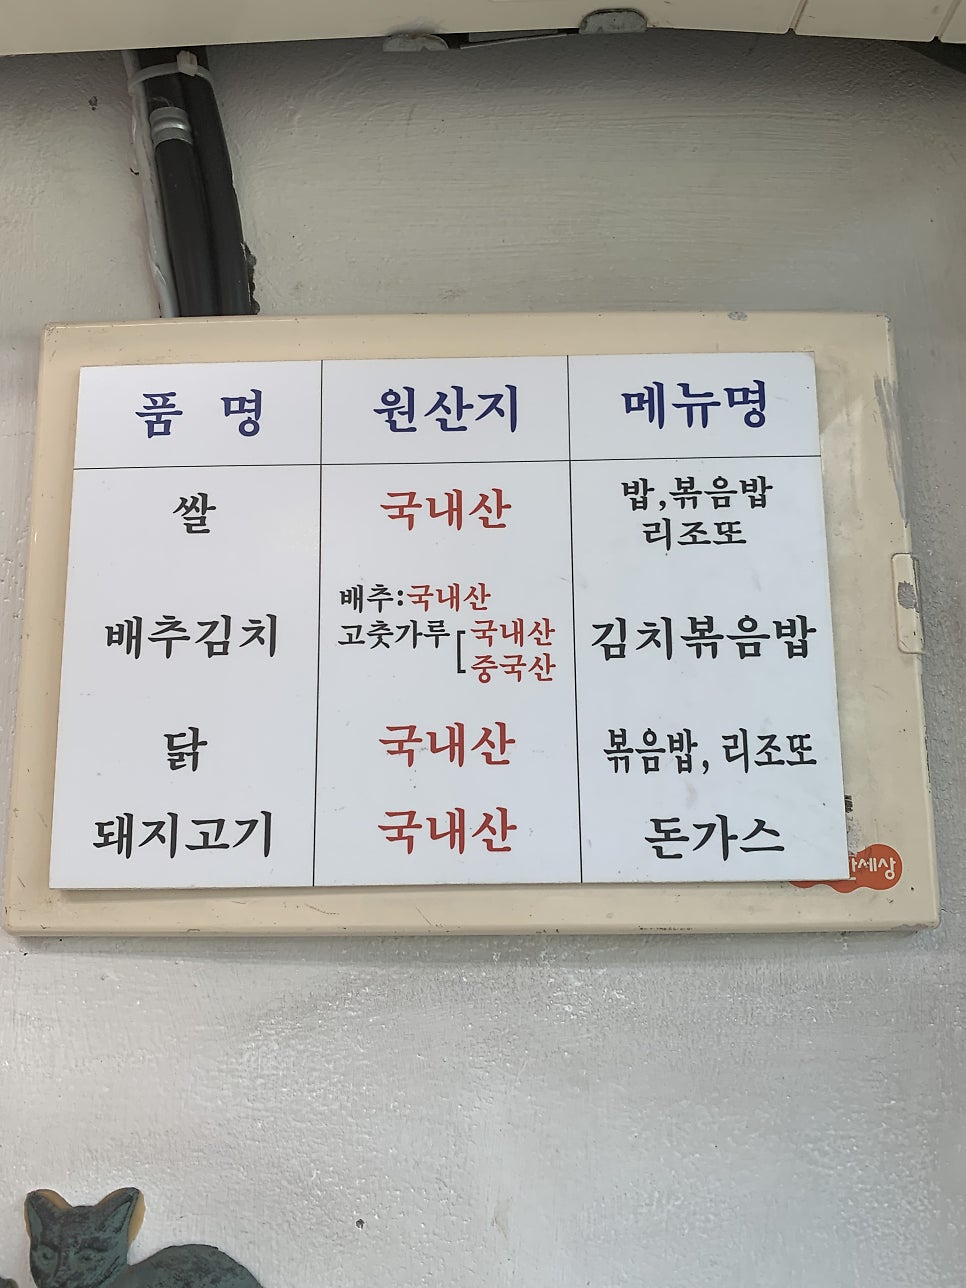 품 명 원산지 메뉴명
쌀 국내산 밥,볶음밥
리조또
배추:국내산
배추김치 고춧가루[국내산 김치볶음밥
중국산
닭 국내산 볶음밥, 리조또
돼지고기 국내산 돈가스
세상